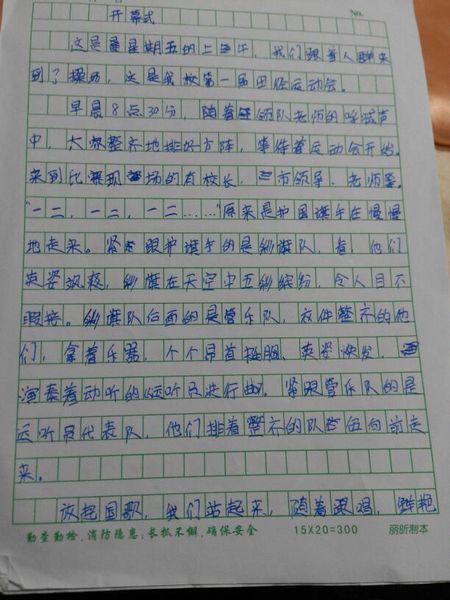 No.
开幕式
这是星期五的上午，我们跟着人群来
到了操场，这是我校第一届田径运动会。
早晨8点30分，随着领队老师的呼喊声
中，大家整齐地排好方阵，等待着运动会开始。
来到比赛现场的有校长，市领导，老师等。
“一二，一二，一二……”原来是护国旗手在慢慢
地走来。紧跟护旗手的是彩旗队，看，他们
英姿飒爽，彩旗在天空中五彩缤纷，令人目不
暇接。彩旗队后面的是管乐队，衣件整齐的他
们，拿着乐器，个个昂首挺胸，英姿焕发，
演奏着动听的《运动员进行曲》。紧跟管乐队的是
运动员代表队，他们排着整齐的队伍向前走
来。
放起国歌，我们站起来，随着，鲜艳
勤查勤检，消防隐患；长抓不懈，确保安全 15X20=300 丽昕制本